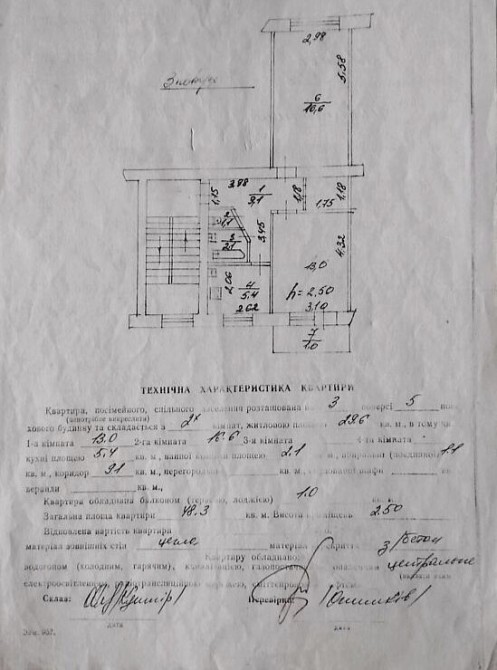 3 поверх
2,98
5,58
6
16,6
3,88
1
9,1
1,15
1,18
1,75
1,18
2
1,1
3
2,1
3,45
4,32
13,0
2,06
4
5,4
2,62
h = 2,50
3,10
7
1.0
ТЕХНІЧНА ХАРАКТЕРИСТИКА КВАРТИРИ
Квартира, посімейного, спільного заселення розташована на 3 поверсі 5 пов
(непотрібне викреслити)
хового будинку та складається з 2х кімнат, житловою площею 29.6 кв. м, в тому числі
1-а кімната 13.0 2-га кімната 16.6 3-я кімната 4-та кімната
кухні площею 5,4 кв. м, ванної кімнати площею 2.1 м, вбиральні (поєднаної) 1,1
кв. м, коридор 9.1 кв. м, перегородки кв. м, шафи кв.
веранди кв. м,
Квартира обладнана балконом (терасою, лоджією) 1.0 кв. м
Загальна площа квартири 48.3 кв. м. Висота приміщень 2.50
Відновна вартість квартири
матеріал зовнішніх стін цегла матеріал покриття з/бетон
Квартиру обладнано
водогоном (холодним, гарячим), каналізацією, газопостачанням, опалення центральне
електроосвітленням, сміттєпроводом
Склав: Перевірив:
дата дата